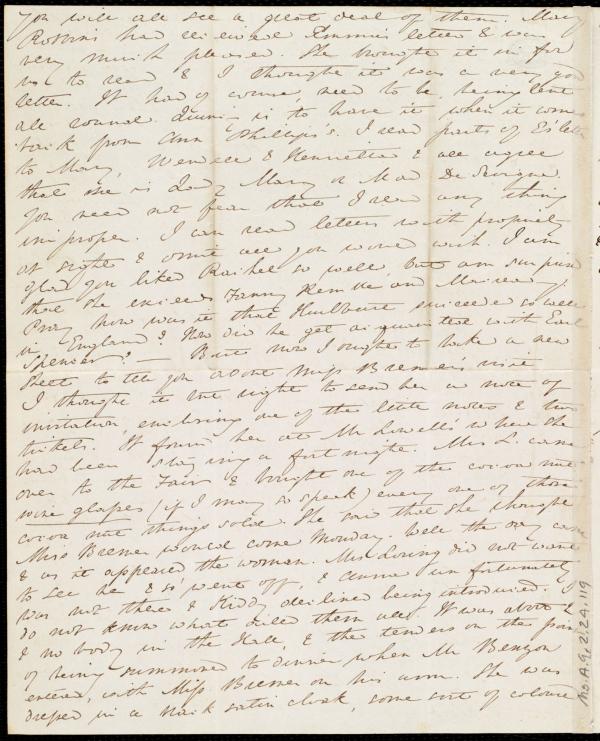 you will all see a great deal of them. Mary
Robbins had received Emma's letter & was
very much pleased. She brought it in for
us to read & I thought it was a very good
letter. It had of course, need to be, being lent
all round. is to have it when it comes
back from Ann Phillips's. I read parts of E's lett
to Mary, Wendell & Henrietta & all agree
that she is Lady Mary or Mad De Sevigne.
You need not fear that I read any thing
improper. I can read letters with propriety
at sight & omit all you would wish. I am
glad you liked Rachel so well, but am surprised
that she exceeds Fanny Kemble and Macready.
Pray how was it that Hurlbut succeeded so well
in England? How did he get acquainted with Earl
Spencer? — But now I ought to take a new
sheet to tell you about Miss Bremer's visit
I thought it but right to send her a note of
invitation, enclosing one of the little notes & two
tickets. It found her at Mr Lowell's where she
had been staying a fortnight. Mrs L. came
over to the Fair & bought one of the cocoa nut
wine glasses (if I may so speak) every one of those
cocoa nut things sold. She said that she thought
Miss Bremer would come Monday. Well the day came
& as it appeared the woman. Mrs Loring did not want
to see her & so went off, & unfortunately
was not there & declined being introduced. I
do not know what ailed them all. It was about 2
& no body in the Hall, & the tenders on the point
of being summoned to dinner when Mr Benzon
entered, with Miss Bremer on his arm. She was
dressed in a black satin cloak, some sort of coloured
Ms.A.9.2.24.119